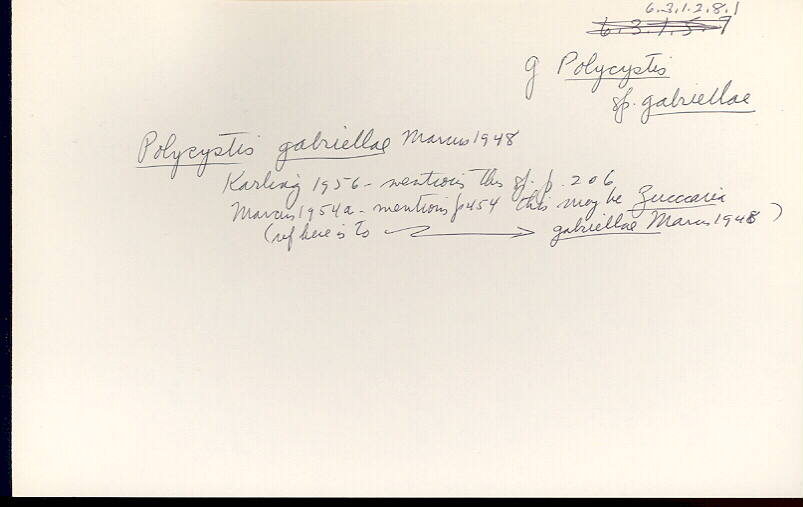 6.3.1.2.8.1
6.3.1.5.7
g Polycystis
sp. gabriellae
Polycystis gabriellae Marcus 1948
Karling 1956 - mentions this sp. p. 206
Marcus 1954a - mentions p454 this may be Zuccaria
(ref here is to gabriellae Marcus 1948)